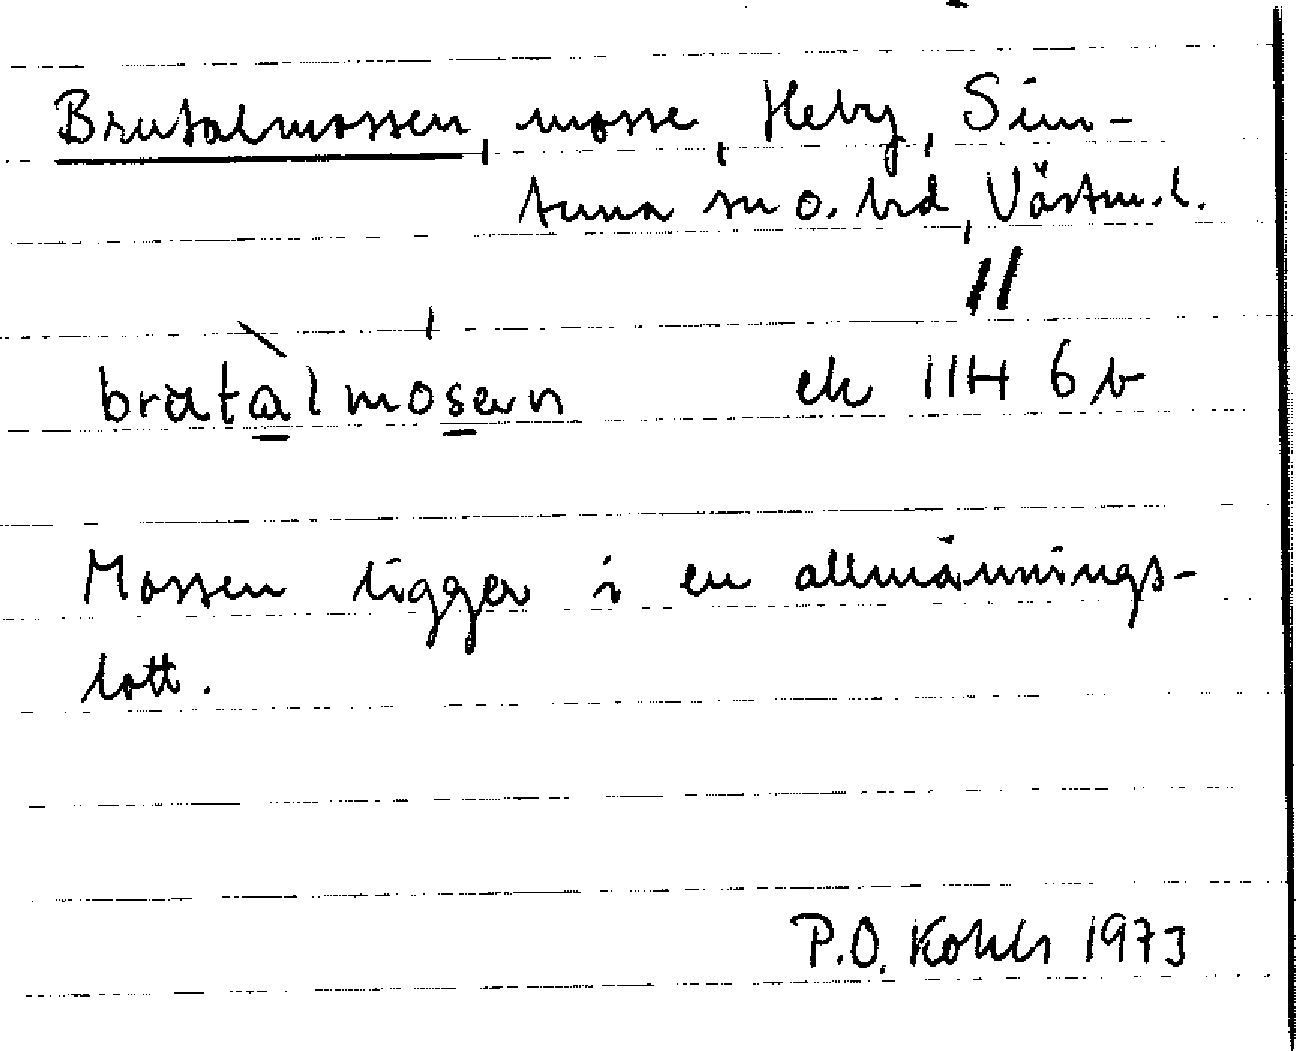 Brutalmossen, mosse, Heby, Sim-
tuna sn o. hd, Västm. l.
ek 11H 6b
Mossen ligger i en allmännings-
lott.
P.O. Kohls 1973